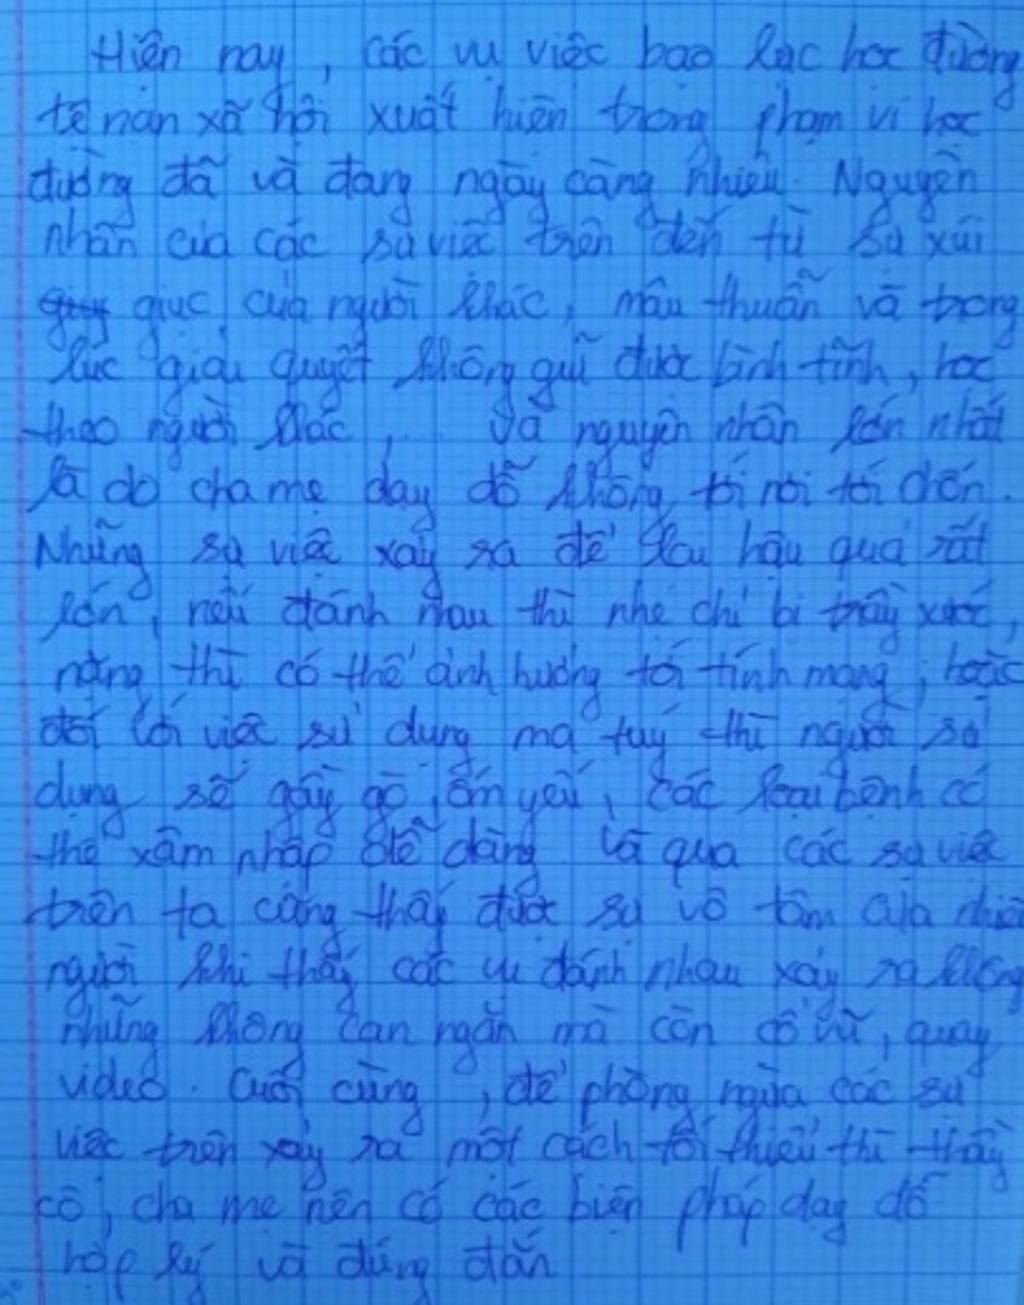 Hiện nay, các vụ việc bạo lực học đường
tệ nạn xã hội xuất hiện trong phạm vi học
đường đã và đang ngày càng nhiều. Nguyên
nhân của các sự việc trên đến từ sự xúi
giục của người khác, mâu thuẫn và trong
lúc giải quyết không giữ được bình tĩnh, học
theo người khác,... Và nguyên nhân lớn nhất
là do cha mẹ dạy dỗ không tới nơi tới chốn.
Những sự việc xảy ra để lại hậu quả rất
lớn, nếu đánh nhau thì nhẹ chỉ bị trầy xước,
nặng thì có thể ảnh hưởng tới tính mạng, hoặc
đối với việc sử dụng ma túy thì người sử
dụng sẽ gầy gò, ốm yếu, các loại bệnh có
thể xâm nhập dễ dàng và qua các sự việc
trên ta cũng thấy được sự vô tâm của nhiều
người khi thấy các vụ đánh nhau xảy ra không
những không can ngăn mà còn cổ vũ, quay
video. Cuối cùng, để phòng ngừa các sự
việc trên xảy ra một cách tối thiểu thì thầy
cô, cha mẹ nên có các biện pháp dạy dỗ
hợp lý và đúng đắn